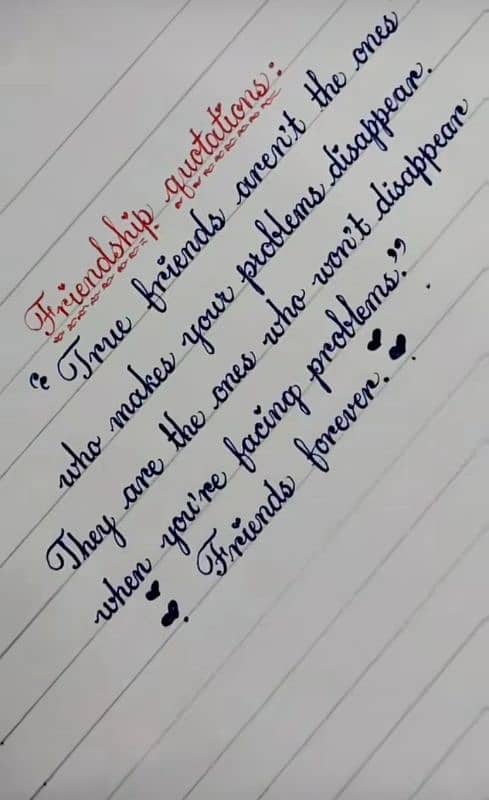 Friendship quotations:
"True friends aren't the ones
who makes your problems disappear.
They are the ones who won't disappear
when you're facing problems."
Friends forever.